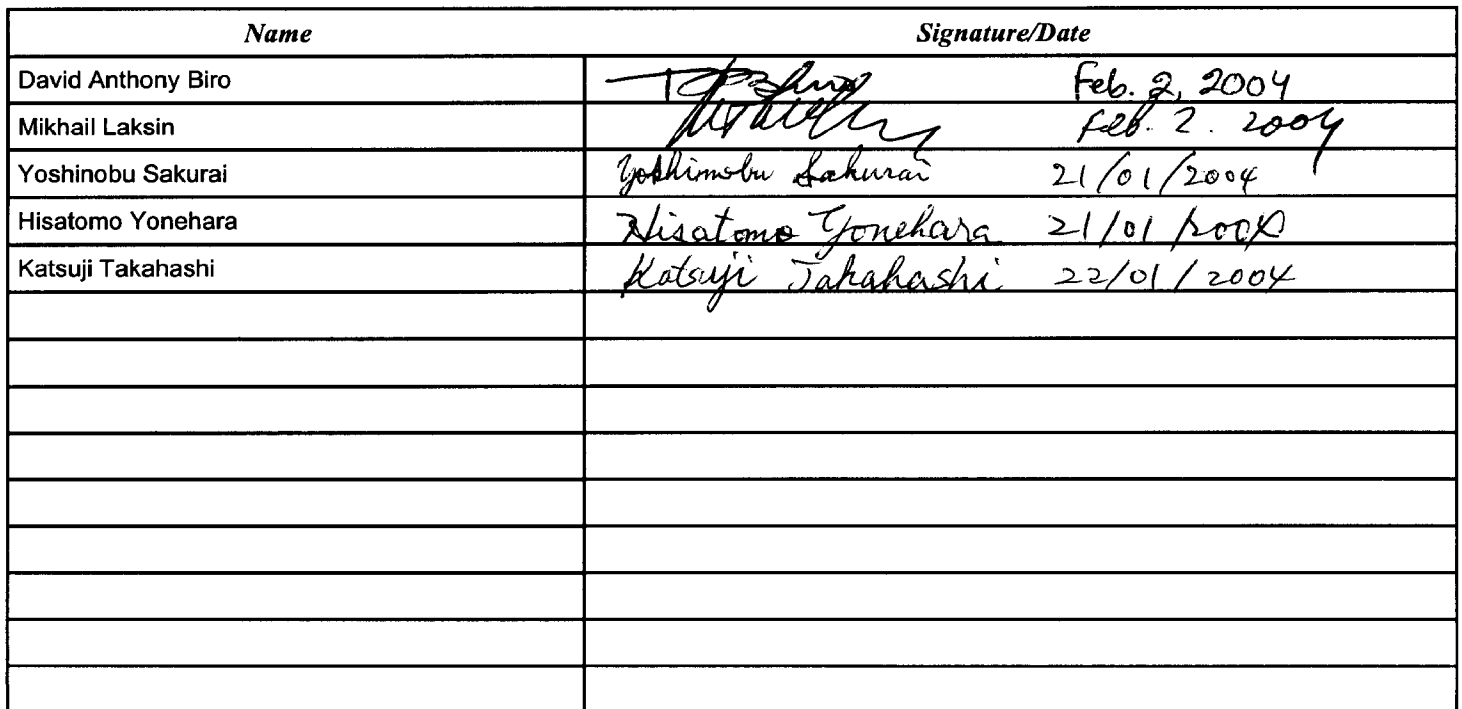 Name Signature/Date
David Anthony Biro Feb. 2, 2004
Mikhail Laksin Feb. 2. 2004
Yoshinobu Sakurai Yoshinobu Sakurai 21/01/2004
Hisatomo Yonehara Hisatomo Yonehara 21/01/2004
Katsuji Takahashi Katsuji Takahashi 22/01/2004